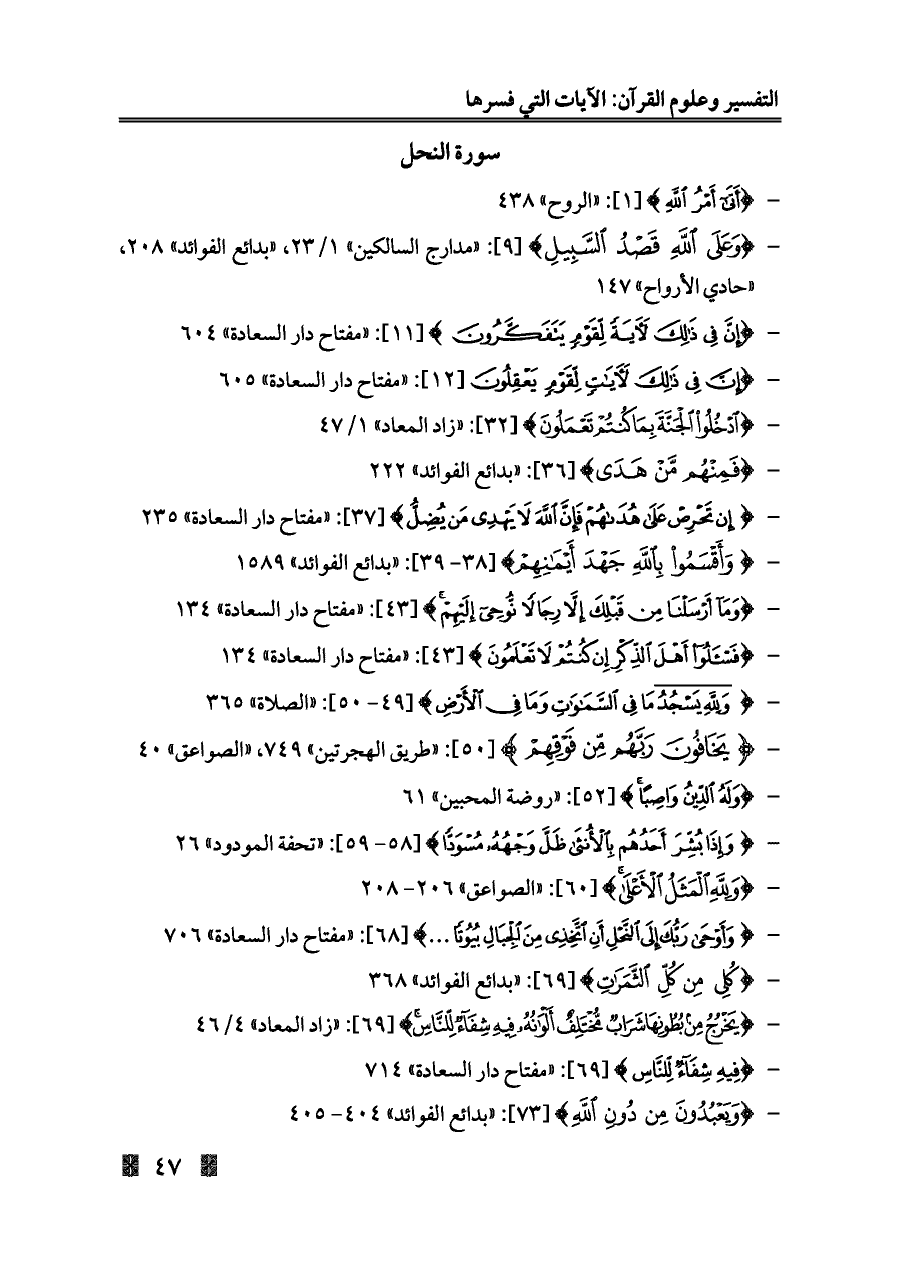 التفسير وعلوم القرآن: الآيات التي فسرها
سورة النحل
- ﴿أَتَىٰٓ أَمْرُ ٱللَّهِ﴾ [١]: «الروح» ٤٣٨
- ﴿وَعَلَى ٱللَّهِ قَصْدُ ٱلسَّبِيلِ﴾ [٩]: «مدارج السالكين» ١/ ٢٣، «بدائع الفوائد» ٢٠٨،
«حادي الأرواح» ١٤٧
- ﴿إِنَّ فِى ذَٰلِكَ لَءَايَةً لِّقَوْمٍ يَتَفَكَّرُونَ﴾ [١١]: «مفتاح دار السعادة» ٦٠٤
- ﴿إِنَّ فِى ذَٰلِكَ لَءَايَٰتٍ لِّقَوْمٍ يَعْقِلُونَ﴾ [١٢]: «مفتاح دار السعادة» ٦٠٥
- ﴿ٱدْخُلُوا۟ ٱلْجَنَّةَ بِمَا كُنتُمْ تَعْمَلُونَ﴾ [٣٢]: «زاد المعاد» ١/ ٤٧
- ﴿فَمِنْهُم مَّنْ هَدَى﴾ [٣٦]: «بدائع الفوائد» ٢٢٢
- ﴿إِن تَحْرِصْ عَلَىٰ هُدَىٰهُمْ فَإِنَّ ٱللَّهَ لَا يَهْدِى مَن يُضِلُّ﴾ [٣٧]: «مفتاح دار السعادة» ٢٣٥
- ﴿وَأَقْسَمُوا۟ بِٱللَّهِ جَهْدَ أَيْمَٰنِهِمْ﴾ [٣٨- ٣٩]: «بدائع الفوائد» ١٥٨٩
- ﴿وَمَآ أَرْسَلْنَا مِن قَبْلِكَ إِلَّا رِجَالًا نُّوحِىٓ إِلَيْهِمْ ۚ﴾ [٤٣]: «مفتاح دار السعادة» ١٣٤
- ﴿فَسْـَٔلُوٓا۟ أَهْلَ ٱلذِّكْرِ إِن كُنتُمْ لَا تَعْلَمُونَ﴾ [٤٣]: «مفتاح دار السعادة» ١٣٤
- ﴿وَلِلَّهِ يَسْجُدُ مَا فِى ٱلسَّمَٰوَٰتِ وَمَا فِى ٱلْأَرْضِ﴾ [٤٩- ٥٠]: «الصلاة» ٣٦٥
- ﴿يَخَافُونَ رَبَّهُم مِّن فَوْقِهِمْ﴾ [٥٠]: «طريق الهجرتين» ٧٤٩، «الصواعق» ٤٠
- ﴿وَلَهُ ٱلدِّينُ وَاصِبًا ۚ﴾ [٥٢]: «روضة المحبين» ٦١
- ﴿وَإِذَا بُشِّرَ أَحَدُهُم بِٱلْأُنثَىٰ ظَلَّ وَجْهُهُۥ مُسْوَدًّا﴾ [٥٨- ٥٩]: «تحفة المودود» ٢٦
- ﴿وَلِلَّهِ ٱلْمَثَلُ ٱلْأَعْلَىٰ ۚ﴾ [٦٠]: «الصواعق» ٢٠٦- ٢٠٨
- ﴿وَأَوْحَىٰ رَبُّكَ إِلَى ٱلنَّحْلِ أَنِ ٱتَّخِذِى مِنَ ٱلْجِبَالِ بُيُوتًا ...﴾ [٦٨]: «مفتاح دار السعادة» ٧٠٦
- ﴿كُلِى مِن كُلِّ ٱلثَّمَرَٰتِ﴾ [٦٩]: «بدائع الفوائد» ٣٦٨
- ﴿يَخْرُجُ مِنۢ بُطُونِهَا شَرَابٌ مُّخْتَلِفٌ أَلْوَٰنُهُۥ فِيهِ شِفَآءٌ لِّلنَّاسِ ۗ﴾ [٦٩]: «زاد المعاد» ٤/ ٤٦
- ﴿فِيهِ شِفَآءٌ لِّلنَّاسِ﴾ [٦٩]: «مفتاح دار السعادة» ٧١٤
- ﴿وَيَعْبُدُونَ مِن دُونِ ٱللَّهِ﴾ [٧٣]: «بدائع الفوائد» ٤٠٤- ٤٠٥
٤٧